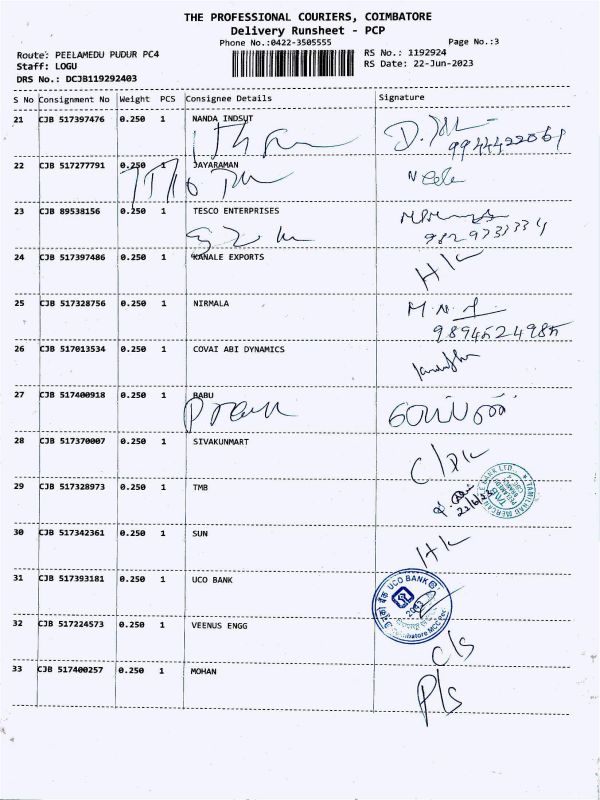 THE PROFESSIONAL COURIERS, COIMBATORE
Delivery Runsheet - PCP
Phone No.:0422-3505555 Page No.:3
Route: PEELAMEDU PUDUR PC4 RS No.: 1192924
Staff: LOGU RS Date: 22-Jun-2023
DRS No.: DCJB119292403
S No Consignment No Weight PCS Consignee Details Signature
21 CJB 517397476 0.250 1 NANDA INDSUT
9944422061
22 CJB 517277791 0.250 1 JAYARAMAN
23 CJB 89538156 0.250 1 TESCO ENTERPRISES
24 CJB 517397486 0.250 1 KANALE EXPORTS
H/c
25 CJB 517328756 0.250 1 NIRMALA
9894524985
26 CJB 517013534 0.250 1 COVAI ABI DYNAMICS
27 CJB 517400918 0.250 1 BABU
28 CJB 517370007 0.250 1 SIVAKUNMART
29 CJB 517328973 0.250 1 TMB
22/6/23
TMB
30 CJB 517342361 0.250 1 SUN
H/c
31 CJB 517393181 0.250 1 UCO BANK
UCO BANK
32 CJB 517224573 0.250 1 VEENUS ENGG
C/s
33 CJB 517400257 0.250 1 MOHAN
P/s